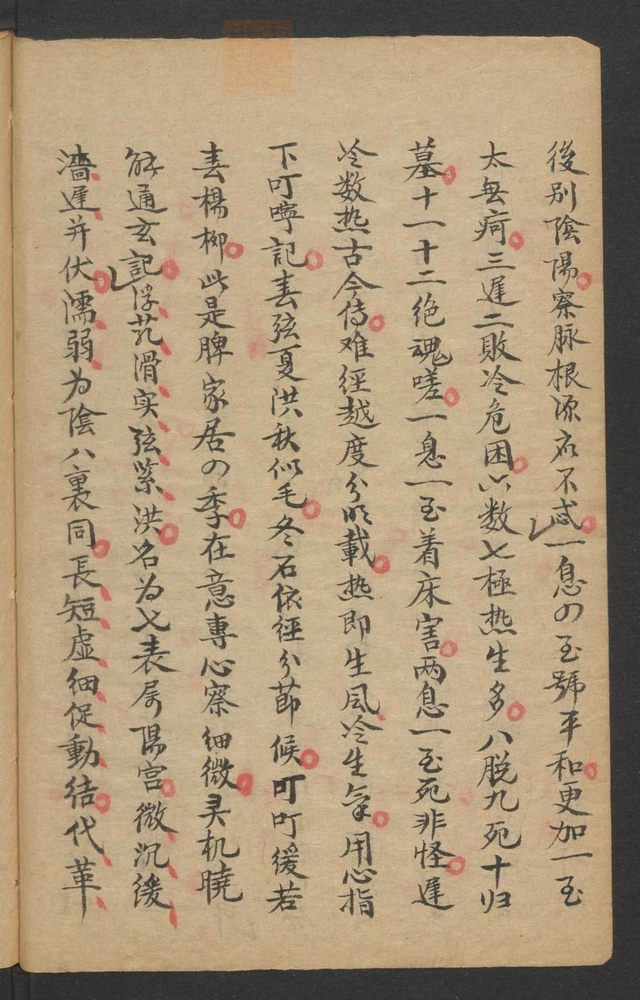 後别陰陽察脉根源应不忒一息の至號平和更加一至
太無疴三遲二敗冷危困六数七極热生多八脱九死十归
墓十一十二绝魂嗟一息一至着床害两息一至死非怪遲
冷数热古今传难經越度分明載热即生風冷生氣用心指
下叮嚀記春弦夏洪秋似毛冬石依經分節候叮叮缓若
春楊柳此是脾家居の季在意專心察细微灵机曉
解通玄記浮芤滑实弦紧洪名为七表屬陽宫微沉缓
濇遲并伏濡弱为陰八裏同長短虚细促動结代革